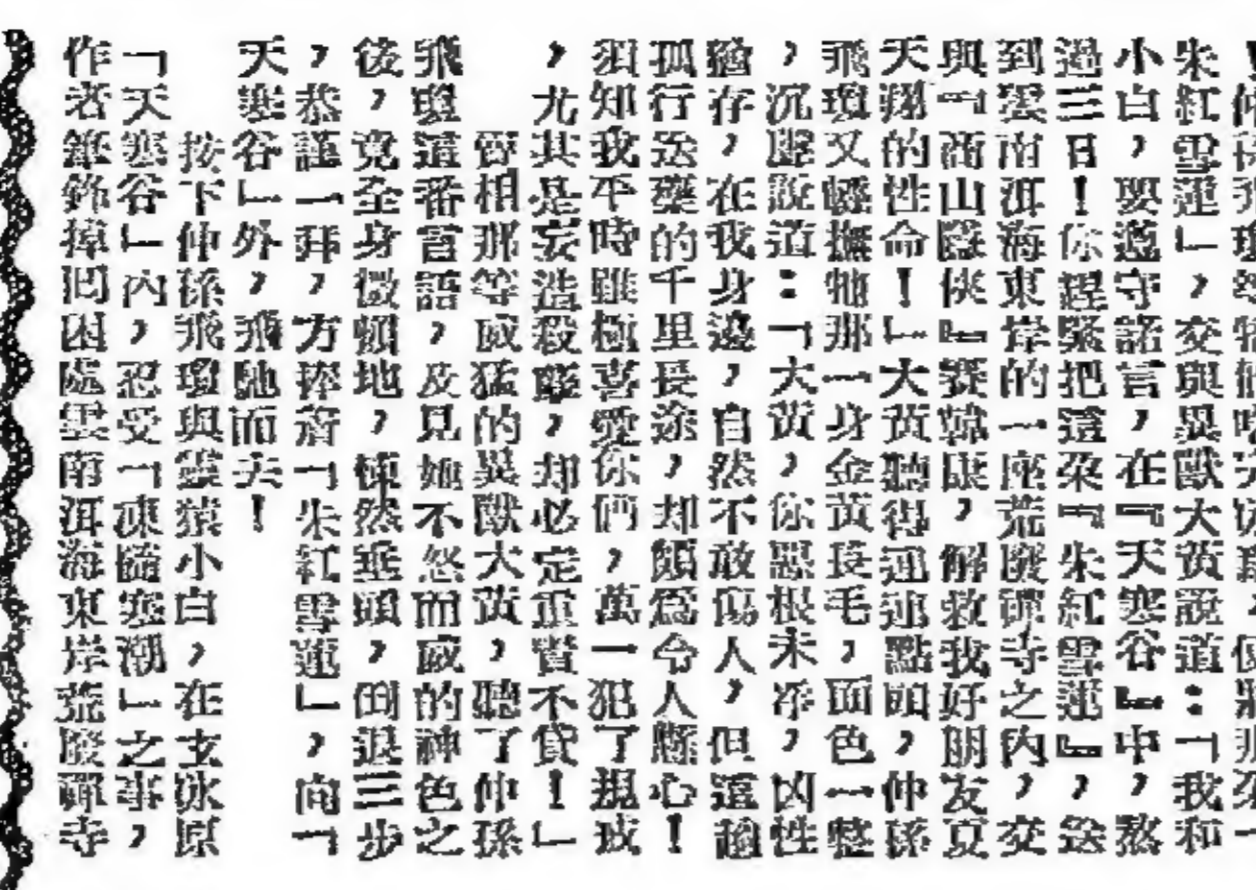 朱紅雪蓮」，交與異獸大黃說道：「我和
小白，要遵守諾言，在『天寒谷』中，熬
過三日！你趕緊把這朵『朱紅雪蓮』，送
到雲南洱海東岸的一座荒廢禪寺之內，交
與『商山隱俠』賽韓康，解救我好朋友夏
天翔的性命！」大黃聽得連連點頭，仲孫
飛瓊又輕撫牠那一身金黃長毛，面色一整
，沉聲說道：「大黃，你惡根未淨，凶性
猶存，在我身邊，自然不敢傷人，但這趟
孤行送藥的千里長途，却頗為令人懸心！
須知我平時雖極喜愛你們，萬一犯了規戒
，尤其是妄造殺孽，却必定重責不貸！」
相那等威猛的異獸大黃，聽了仲孫
飛瓊這番言語，及見她不怒而威的神色之
後，竟全身微顫地，悚然垂頭，倒退三步
，恭謹一拜，方捧着「朱紅雪蓮」，向「
天寒谷」外，飛馳而去！
按下仲孫飛瓊與靈猿小白，在玄冰原
「天寒谷」內，忍受「凍髓寒潮」之事，
作者筆鋒掉回困處雲南洱海東岸荒廢禪寺